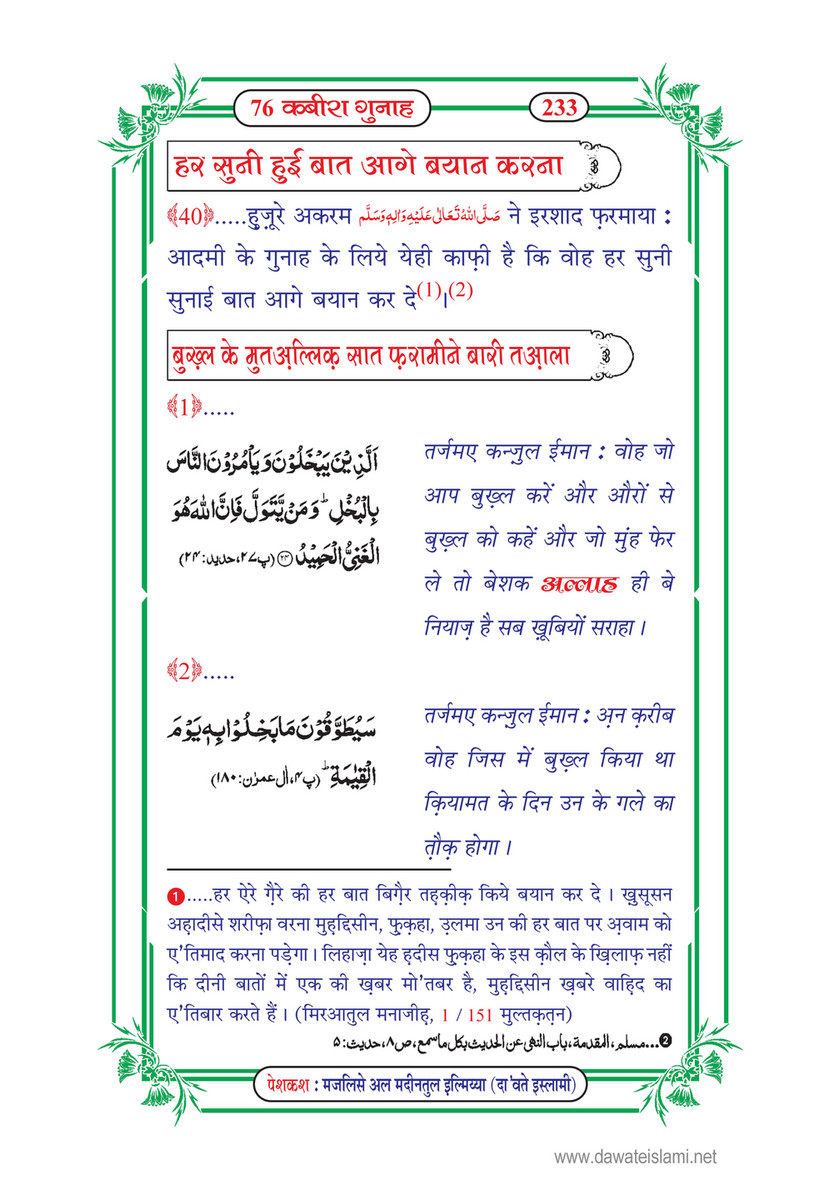 76 कबीरा गुनाह
233
हर सुनी हुई बात आगे बयान करना
﴾40﴿.....हुज़ूरे अकरम صَلَّى اللهُ تَعَالٰى عَلَيْهِ وَاٰلِهٖ وَسَلَّم ने इरशाद फ़रमाया :
आदमी के गुनाह के लिये येही काफ़ी है कि वोह हर सुनी
सुनाई बात आगे बयान कर दे(1)।(2)
बुख़्ल के मुतअ़ल्लिक़ सात फ़रामीने बारी तआ़ला
﴾1﴿.....
اَلَّذِیْنَ یَبْخَلُوْنَ وَ یَاْمُرُوْنَ النَّاسَ
بِالْبُخْلِ ؕ وَ مَنْ یَّتَوَلَّ فَاِنَّ اللّٰهَ هُوَ
الْغَنِیُّ الْحَمِیْدُ ﴿۲۴﴾ (پ۲۷، حدید: ۲۴)
तर्जमए कन्ज़ुल ईमान : वोह जो
आप बुख़्ल करें और औरों से
बुख़्ल को कहें और जो मुंह फेर
ले तो बेशक अल्लाह ही बे
नियाज़ है सब ख़ूबियों सराहा ।
﴾2﴿.....
سَیُطَوَّقُوْنَ مَا بَخِلُوْا بِهٖ یَوْمَ
الْقِیٰمَةِ ؕ (پ۴، اٰل عمرٰن: ۱۸۰)
तर्जमए कन्ज़ुल ईमान : अ़न क़रीब
वोह जिस में बुख़्ल किया था
क़ियामत के दिन उन के गले का
त़ौक़ होगा ।
1.....हर ऐरे ग़ैरे की हर बात बिग़ैर तह़क़ीक़ किये बयान कर दे । ख़ुसूसन
अह़ादीसे शरीफ़ा वरना मुह़द्दिसीन, फ़ुक़हा, उ़लमा उन की हर बात पर अ़वाम को
ए'तिमाद करना पड़ेगा । लिहाज़ा येह ह़दीस फ़ुक़हा के इस क़ौल के ख़िलाफ़ नहीं
कि दीनी बातों में एक की ख़बर मो'तबर है, मुह़द्दिसीन ख़बरे वाह़िद का
ए'तिबार करते हैं । (मिरआतुल मनाजीह़, 1 / 151 मुल्तक़त़न)
2...مسلم، المقدمة، باب النهى عن الحديث بكل ماسمع، ص۸، حديث: ۵
पेशकश : मजलिसे अल मदीनतुल इ़ल्मिय्या (दा'वते इस्लामी)
www.dawateislami.net